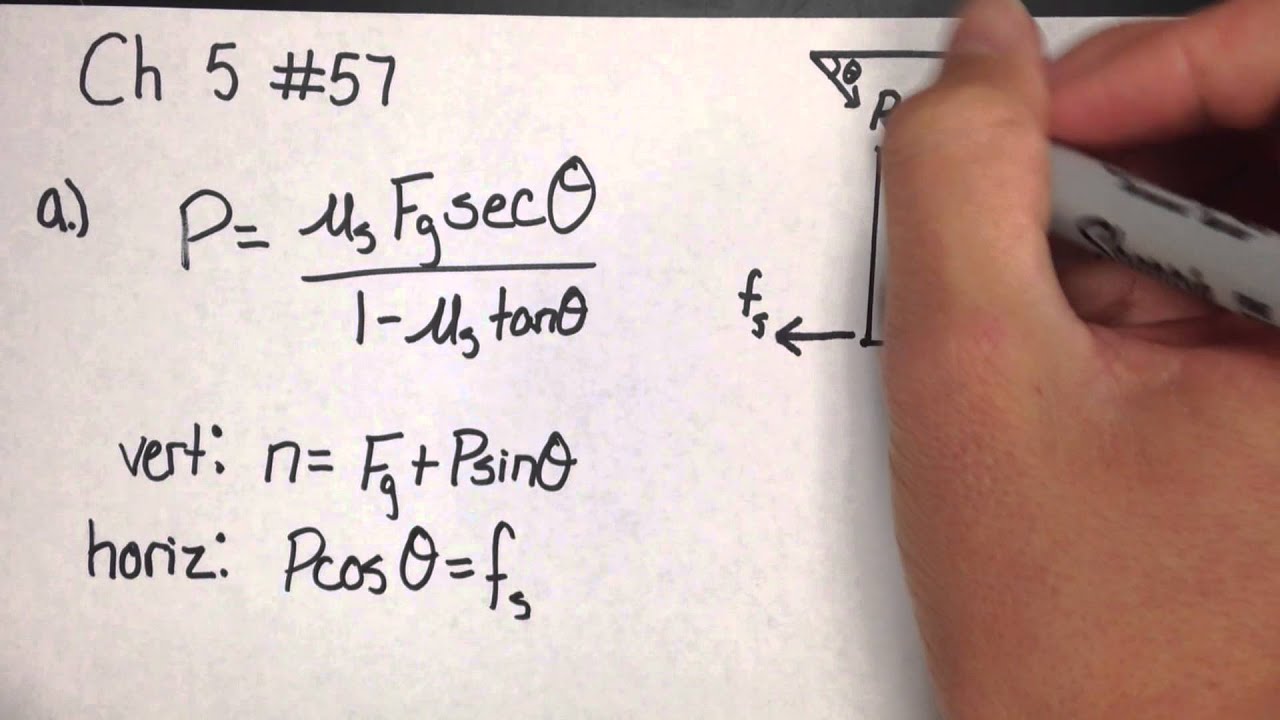 Ch 5 #57
θ
P
a.) P = μs Fg secθ / 1 - μs tanθ
fs
vert: n = Fg + Psinθ
horiz: Pcos θ = fs